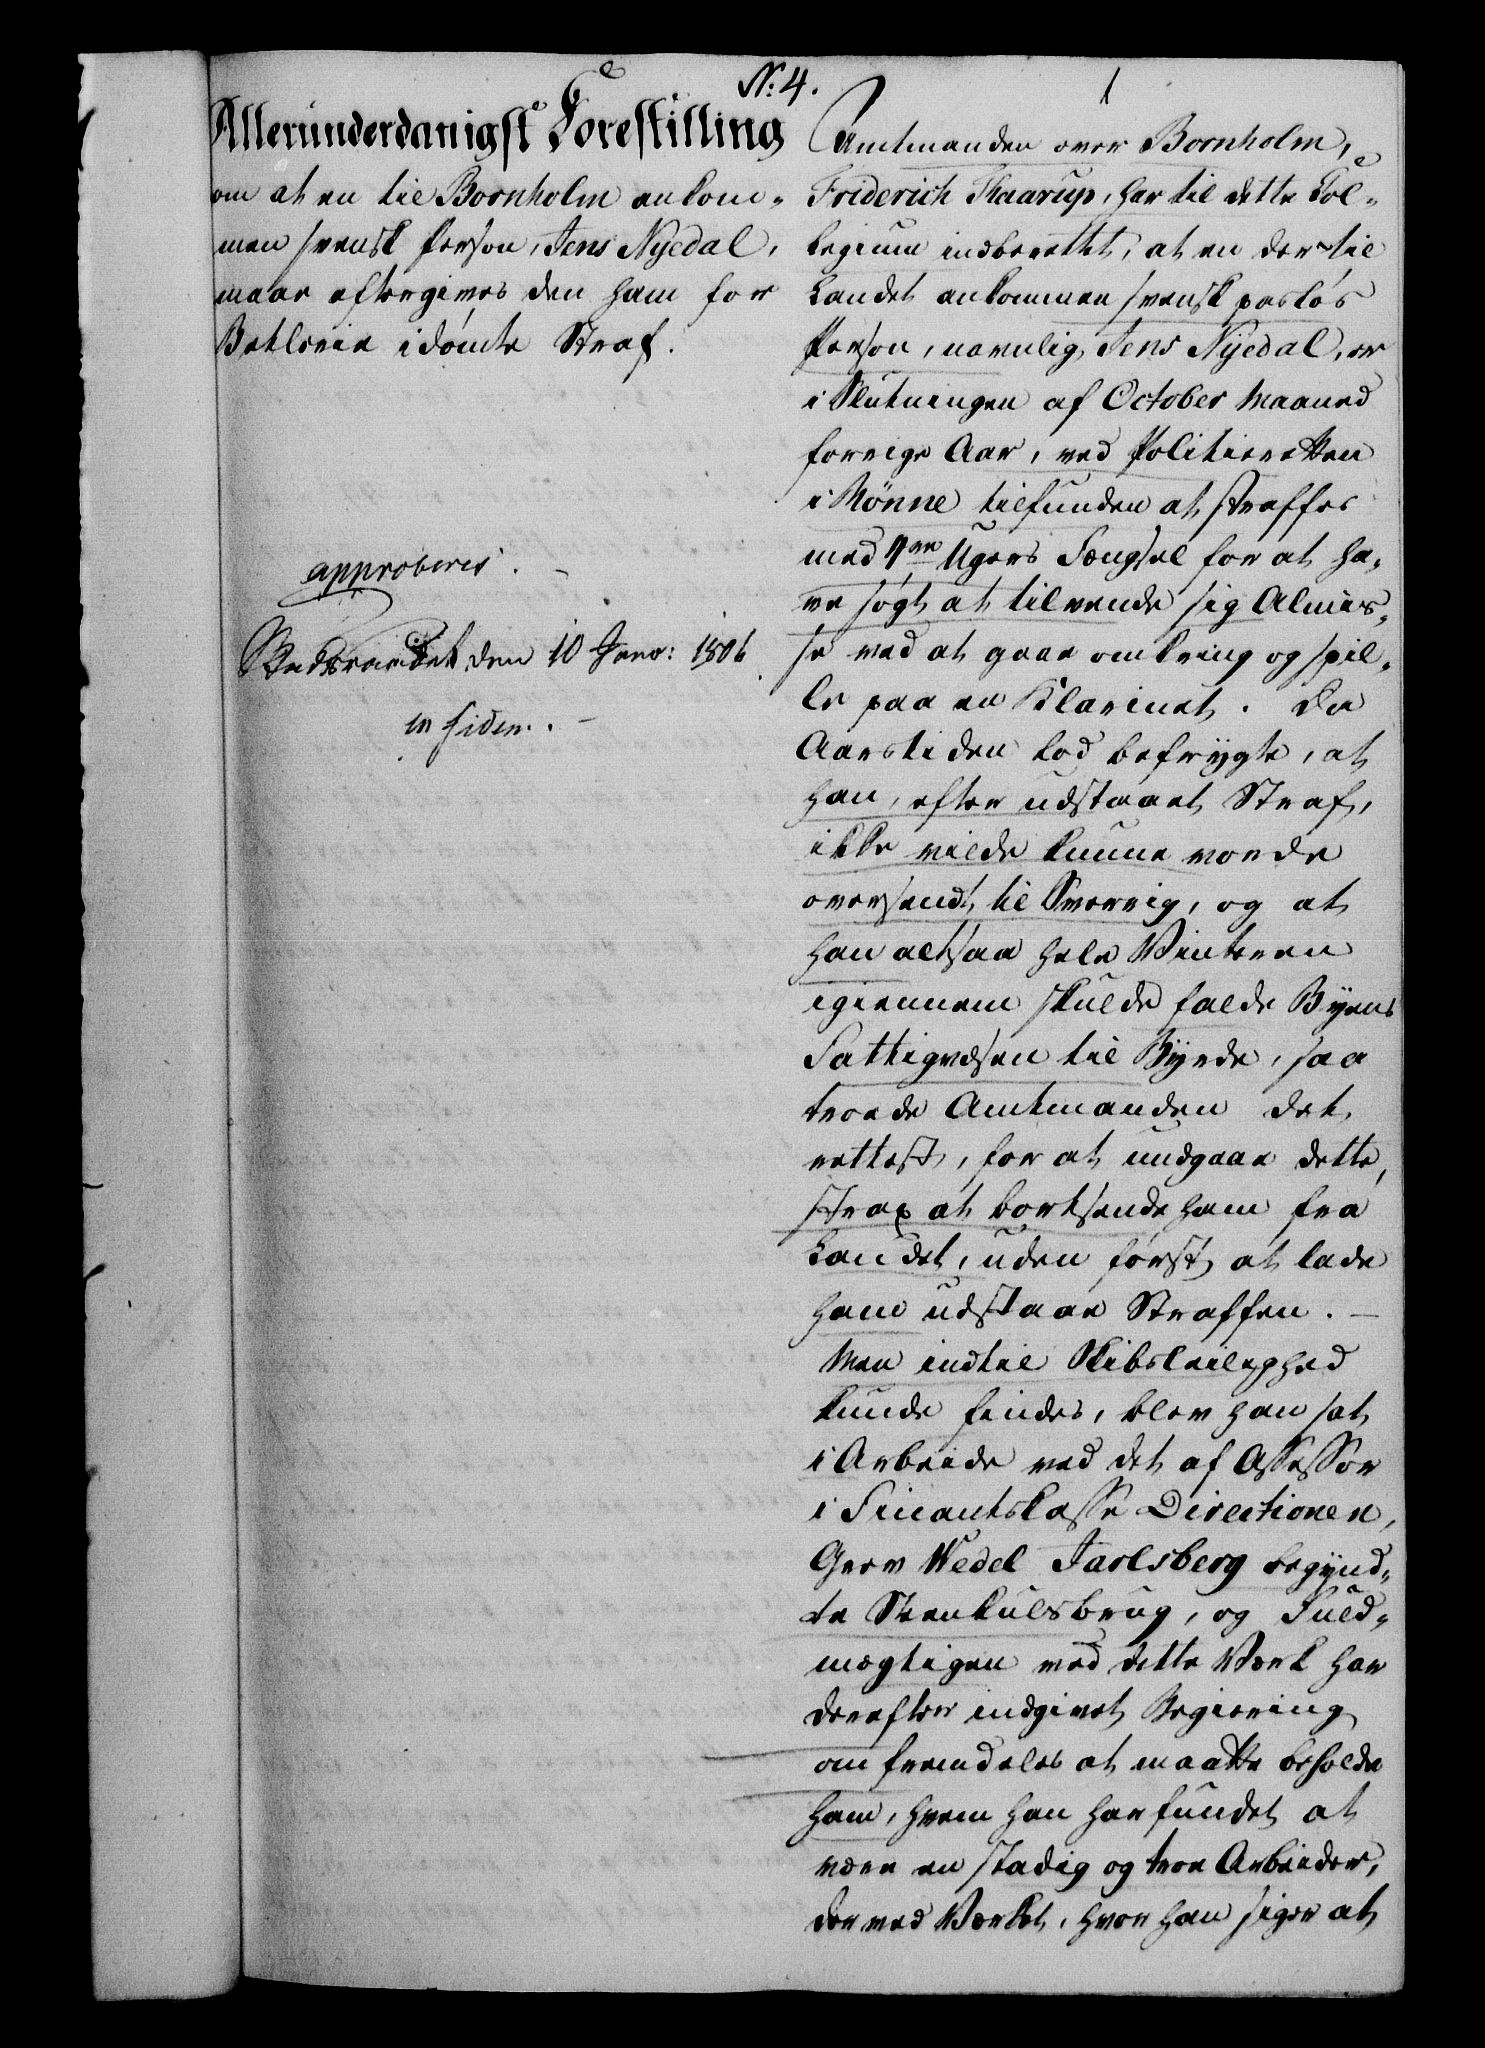 No: 4.
1
Allerunderdanigst Forestilling
om at en til Bornholm ankom-
men svensk Person, Jens Nyedal,
maae eftergives den ham for
Betlerie idømte Straf.
approberes.
den 10 Janv: 1806
Amtmanden over Bornholm,
Friderich Thaarup, har til dette Col-
legium indberettet, at en der til
Landet ankommen svensk pasløs
Person, navnlig Jens Nÿedal, er
i Slutningen af October Maaned
forrige Aar, ved Politieretten
i Rönne tilfunden at straffes
med 4re Ugers Fængsel for at ha-
ve søgt at tilvende sig Almis-
se ved at gaae omkring og spil-
le paa en Klarinet. Da
Aarstiden lod befrygte, at
han, efter udstaaet Straf,
ikke vilde kunne vorde
oversendt til Sverrig, og at
han altsaa hele Vinteren
igiennem skulde falde Byens
Fattigvæsen til Byrde, saa
troede Amtmanden det
rettest, for at undgaae dette,
strax at bortsende ham fra
Landet, uden først at lade
ham udstaae Straffen. —
Men indtil Skibsleilighed
kunde findes, blev han sat
i Arbeide ved det af Assessor
i Finantskasse Directionen,
Grev Wedel Jarlsberg begynd-
te Steenkulsbrug, og Fuld-
mægtigen ved dette Værk har
derefter indgivet Begiering
om fremdeles at maatte beholde
ham, hvem han har fundet at
være en stadig og troe Arbeider,
der ved Værket, hvor han siger at